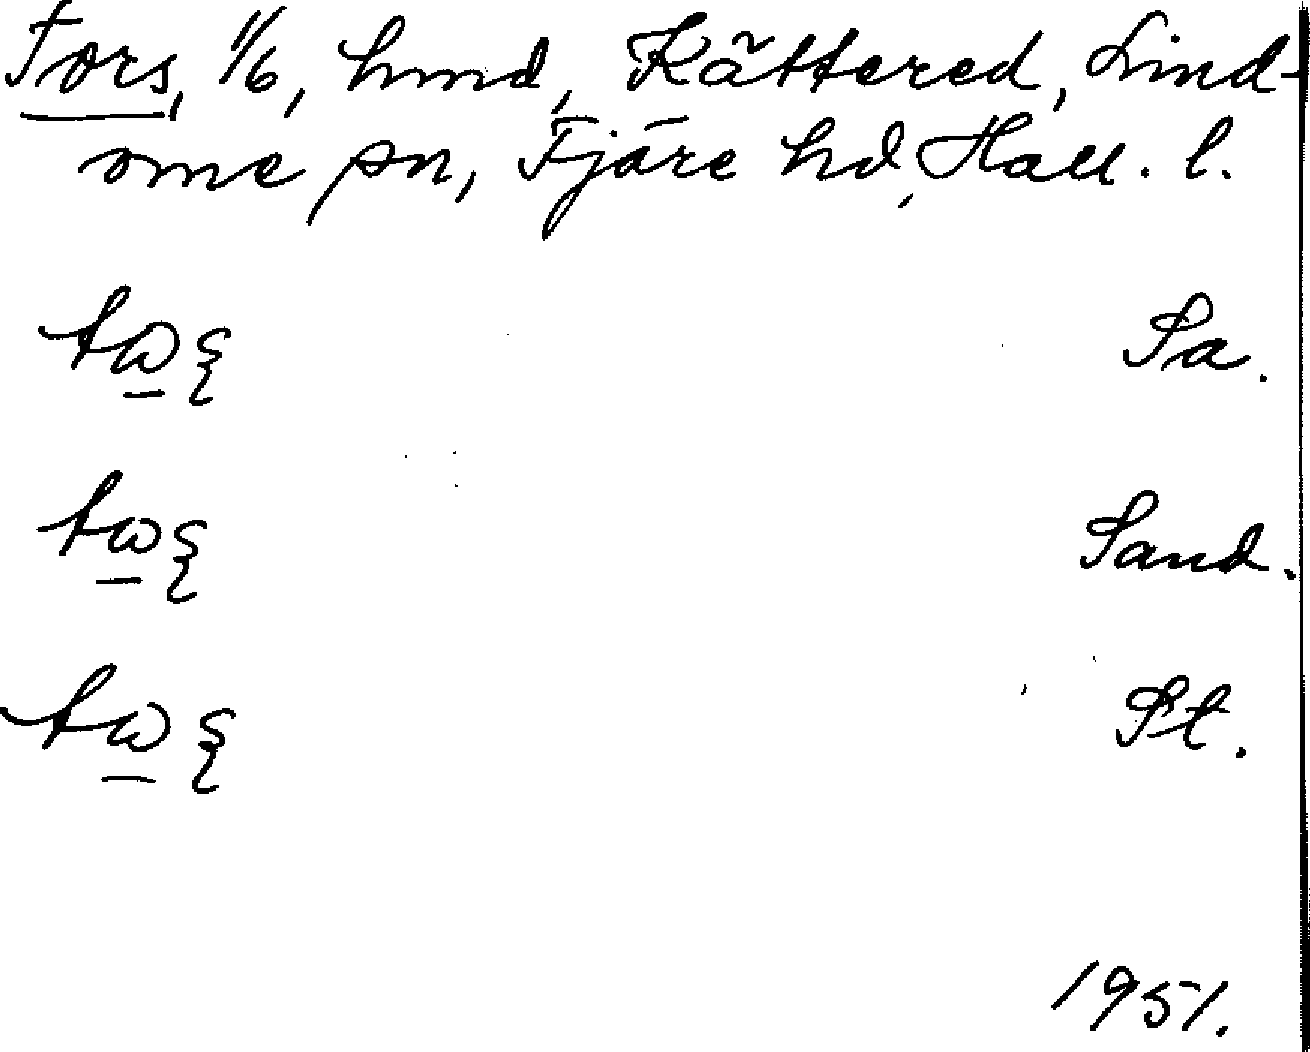 Fors, 1/6, hmd, Kättered, Lind-
ome sn, Fjäre hd, Hall. l.
fω̲ξ Sa.
fω̲ξ Sand.
fω̲ξ St.
1951.